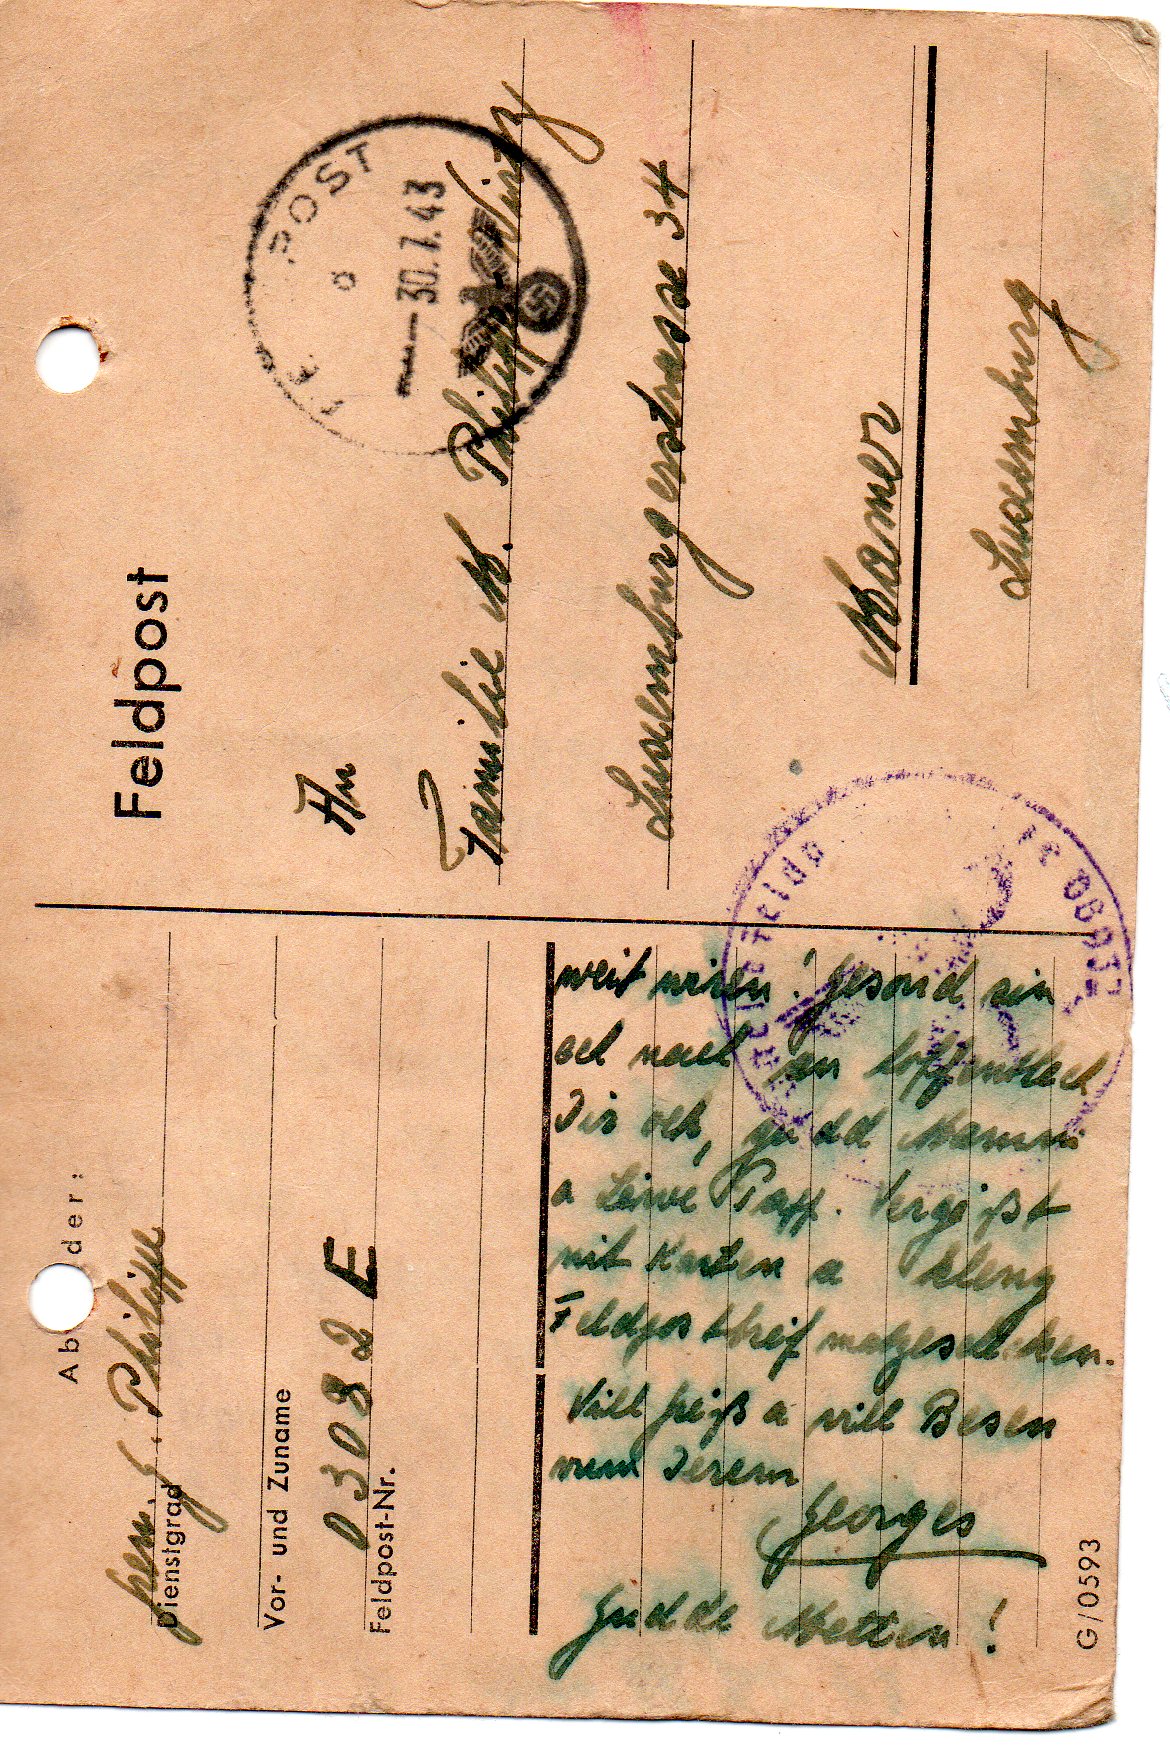 Feldpost
POST
a
30.7.43
An
Familie M. Philipp-Wirtz
Luxemburgerstrasse 34
Mamer
Luxemburg
Absender:
Gren. G. Philippe
Dienstgrad
Vor- und Zuname
03082 E
Feldpost-Nr.
weit wiren! Gesond sin
ech nach an hoffentlech
Dir och, gudd Mamm
a Leiwe Papp. Vergeßt
mit Karten a kleng
Feldpostbreif matzeschecken.
Vill Greiß a vill Besen
vum Ierem
Georges
Gudde Metten!
G/0593